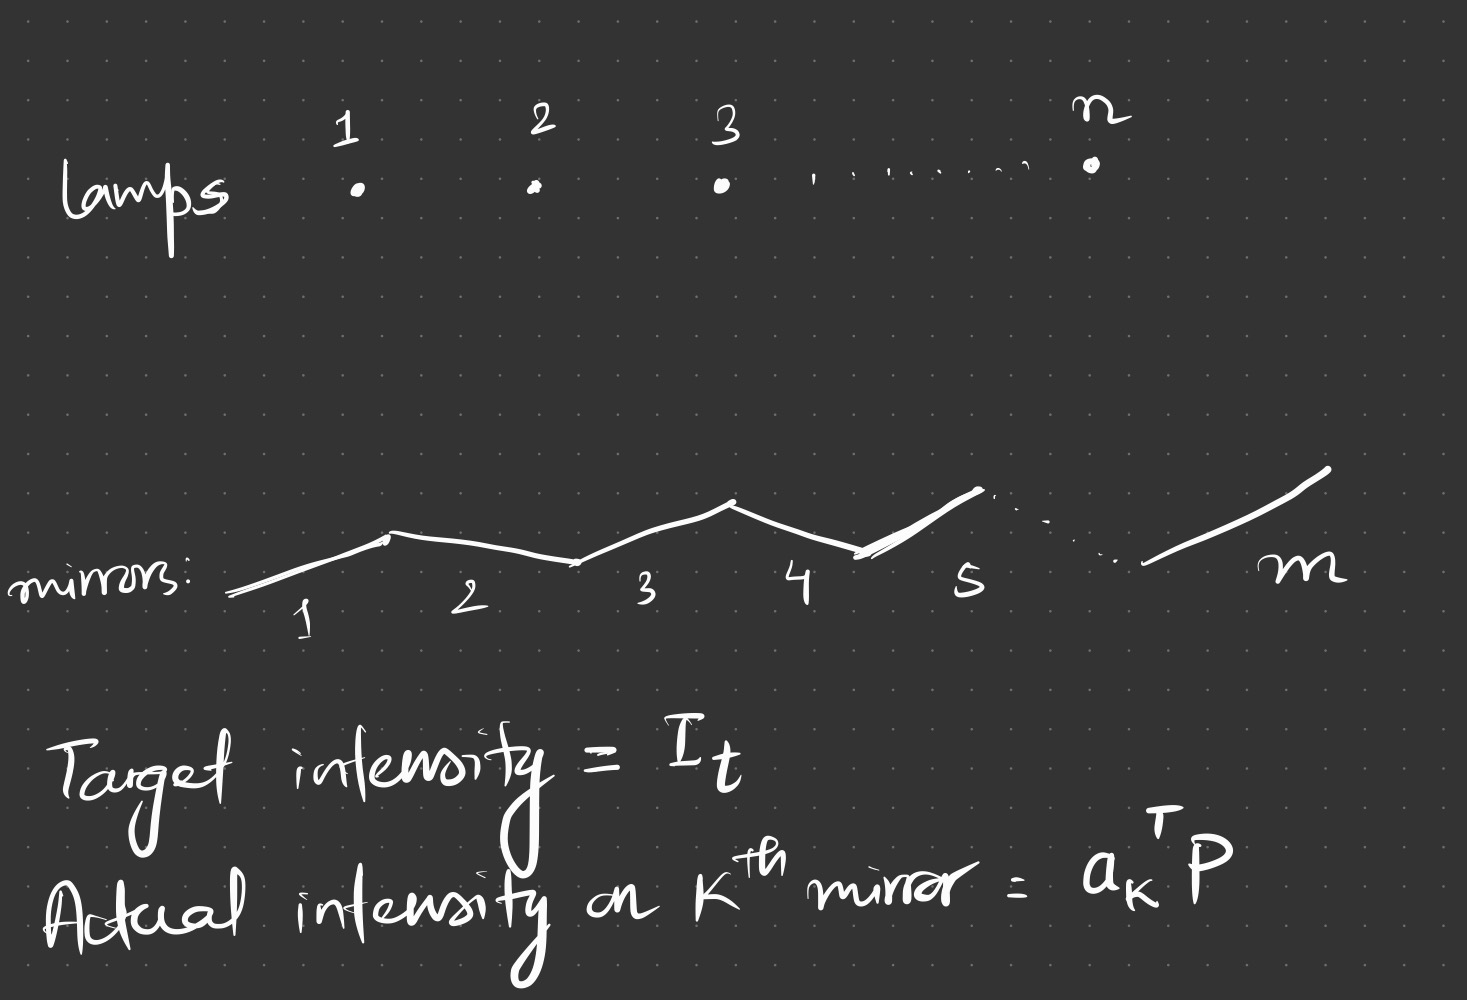 1 2 3 n
Lamps
mirrors:
1 2 3 4 5 m
Target intensity = I_t
Actual intensity on K^th mirror = a_K^T P